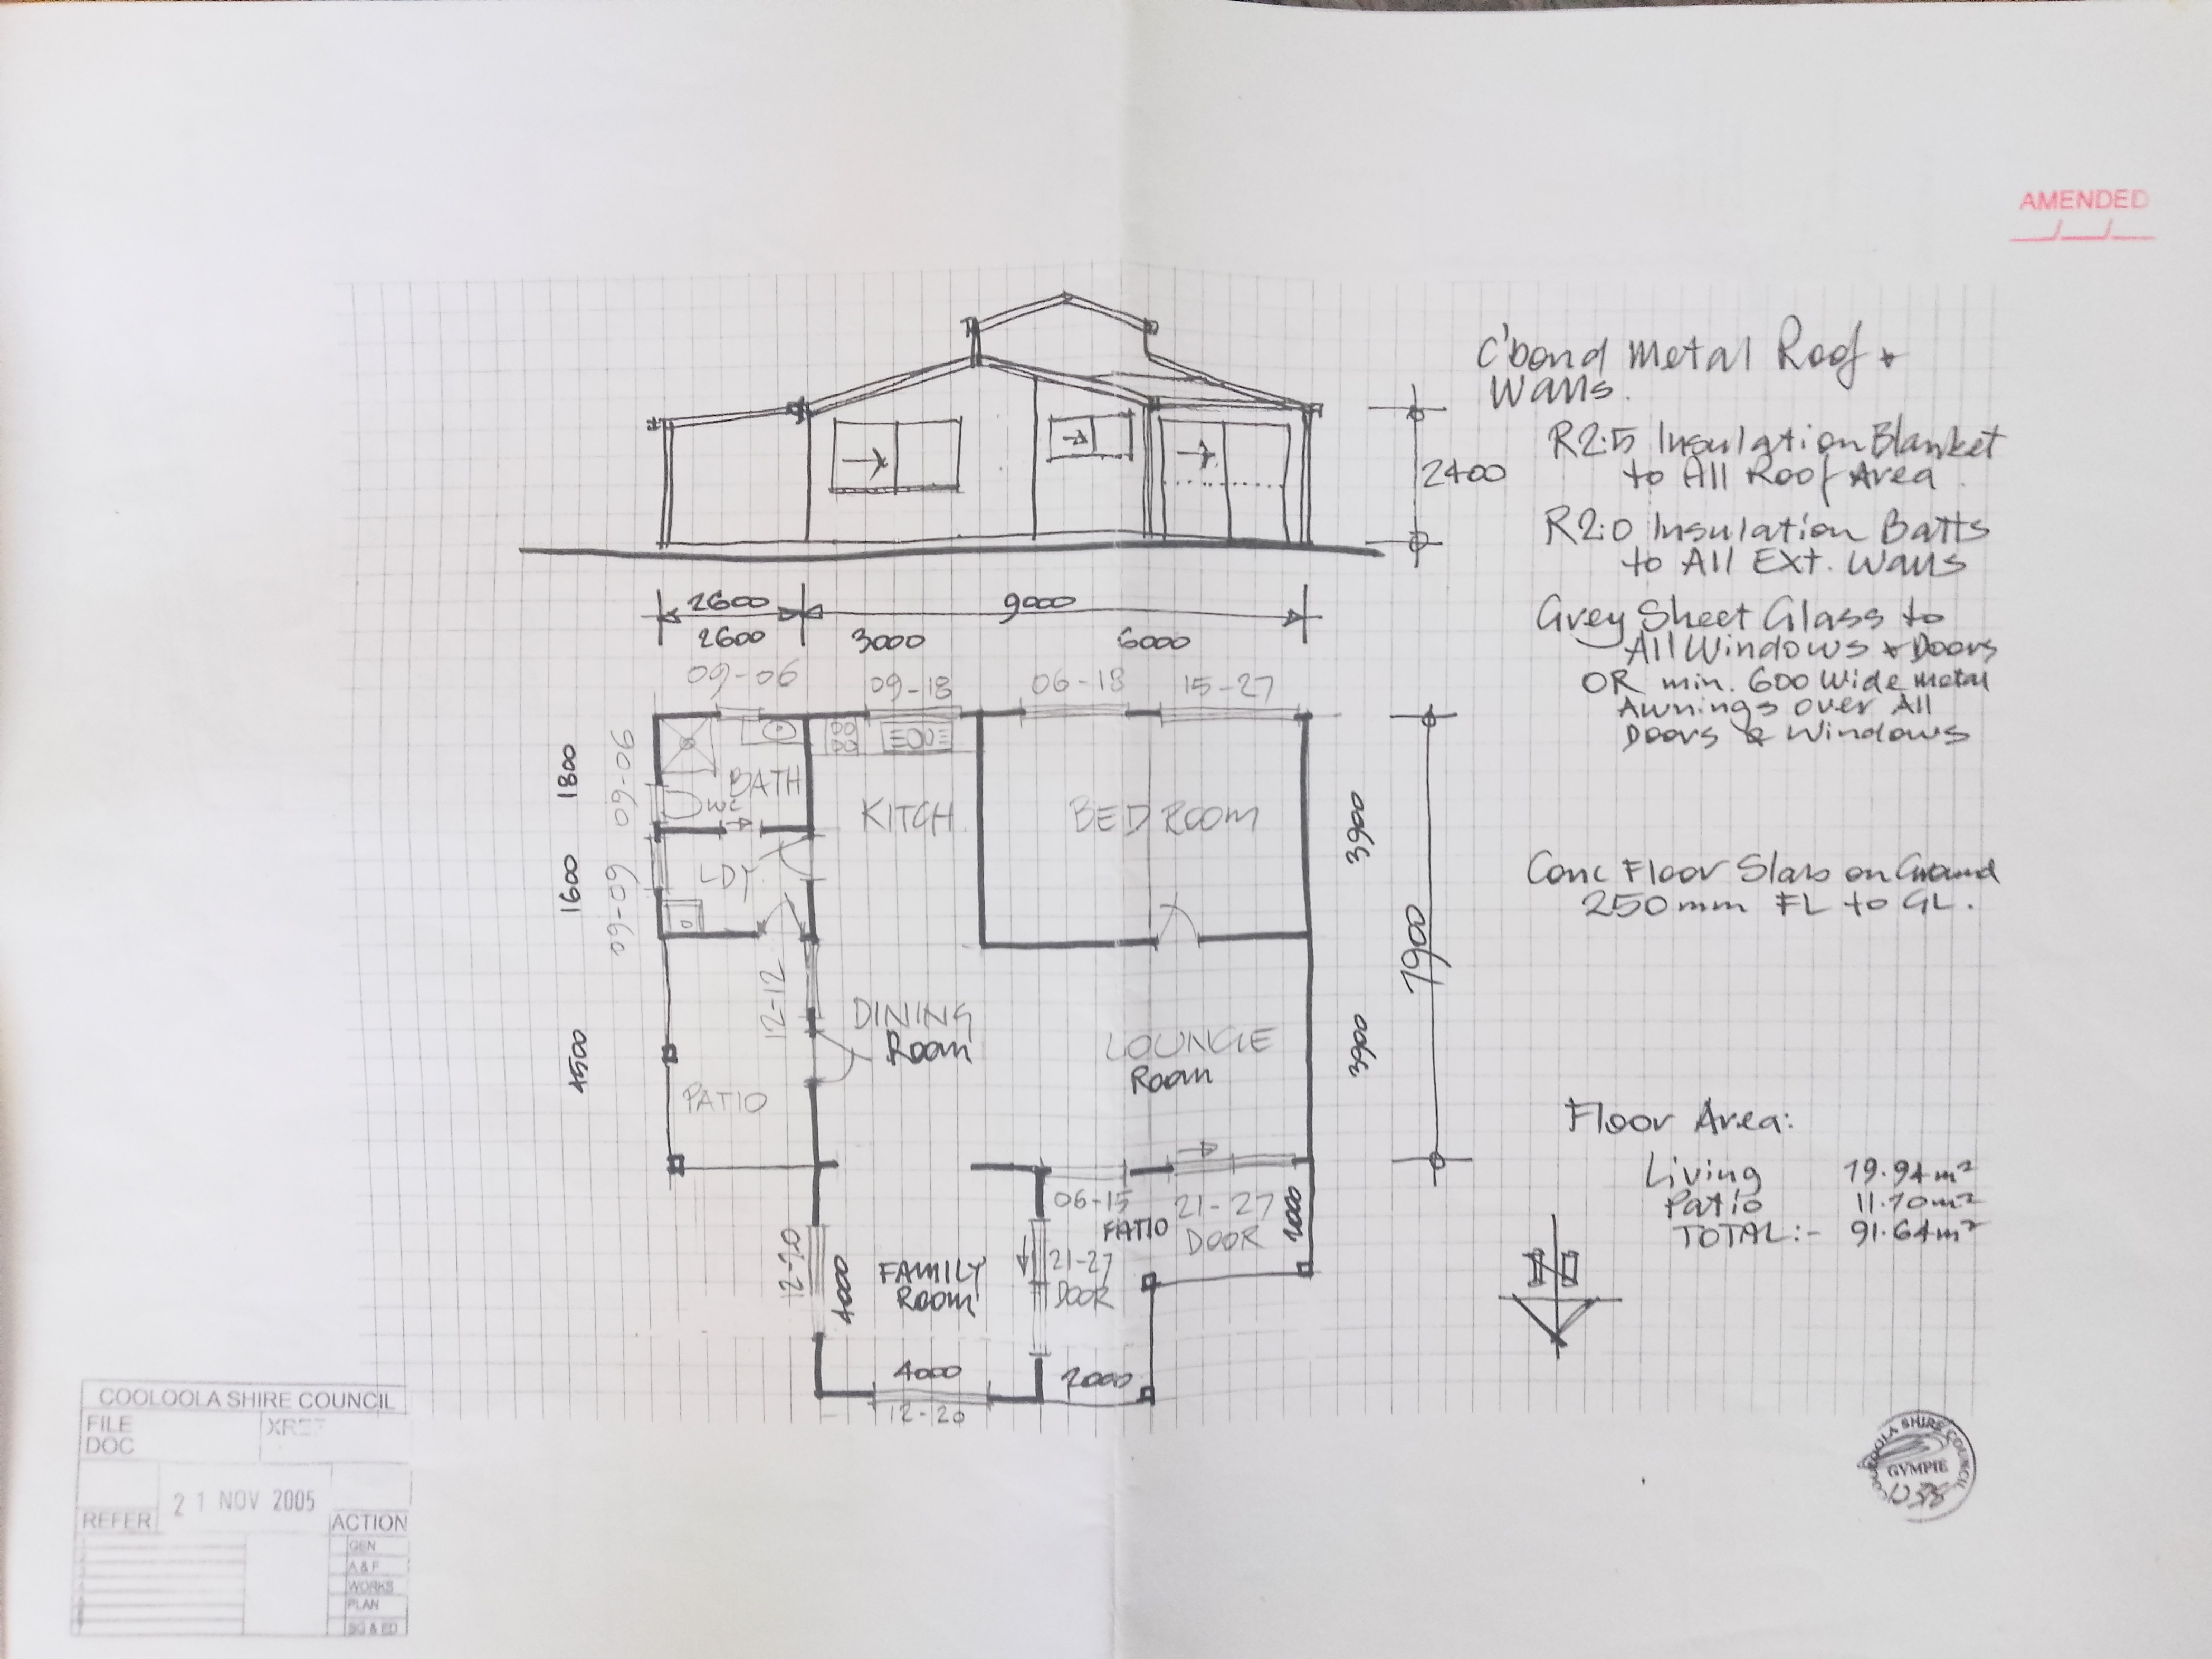 AMENDED
C'bond Metal Roof +
Walls.
R2.5 Insulation Blanket
to All Roof Area.
R2.0 Insulation Batts
to All Ext. Walls
Grey Sheet Glass to
All Windows + Doors
OR min. 600 Wide metal
Awnings over All
Doors & Windows
2400
2600
9000
2600
3000
6000
09-06
09-18
06-18
15-27
1800
09-06
BATH
WC
KITCH.
BEDROOM
3900
1600
09-09
LDY.
Conc Floor Slab on Ground
250mm FL to GL.
7900
12-12
DINING
Room
LOUNGE
Room
4500
3900
PATIO
Floor Area:
Living 79.94m²
Patio 11.70m²
TOTAL:- 91.64m²
06-15
PATIO
21-27
DOOR
2000
12-20
4000
FAMILY
Room
21-27
DOOR
4000
2000
12-20
COOLOOLA SHIRE COUNCIL
FILE
DOC
XREF
21 NOV 2005
REFER
ACTION
GEN
A & F
WORKS
PLAN
COOLOOLA SHIRE COUNCIL
GYMPIE